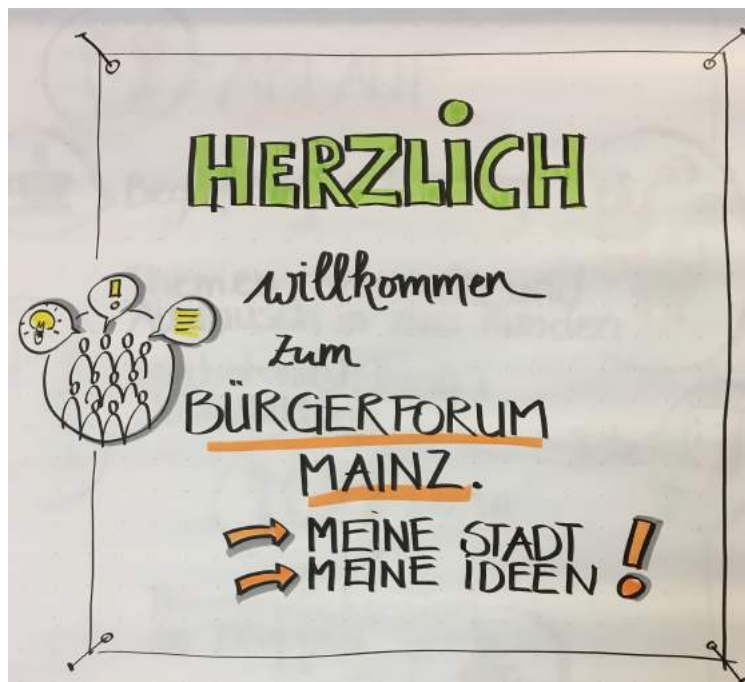 HERZLiCH
willkommen
zum
BÜRGERFORUM
MAINZ.
MEINE STADT
MEINE iDEEN!